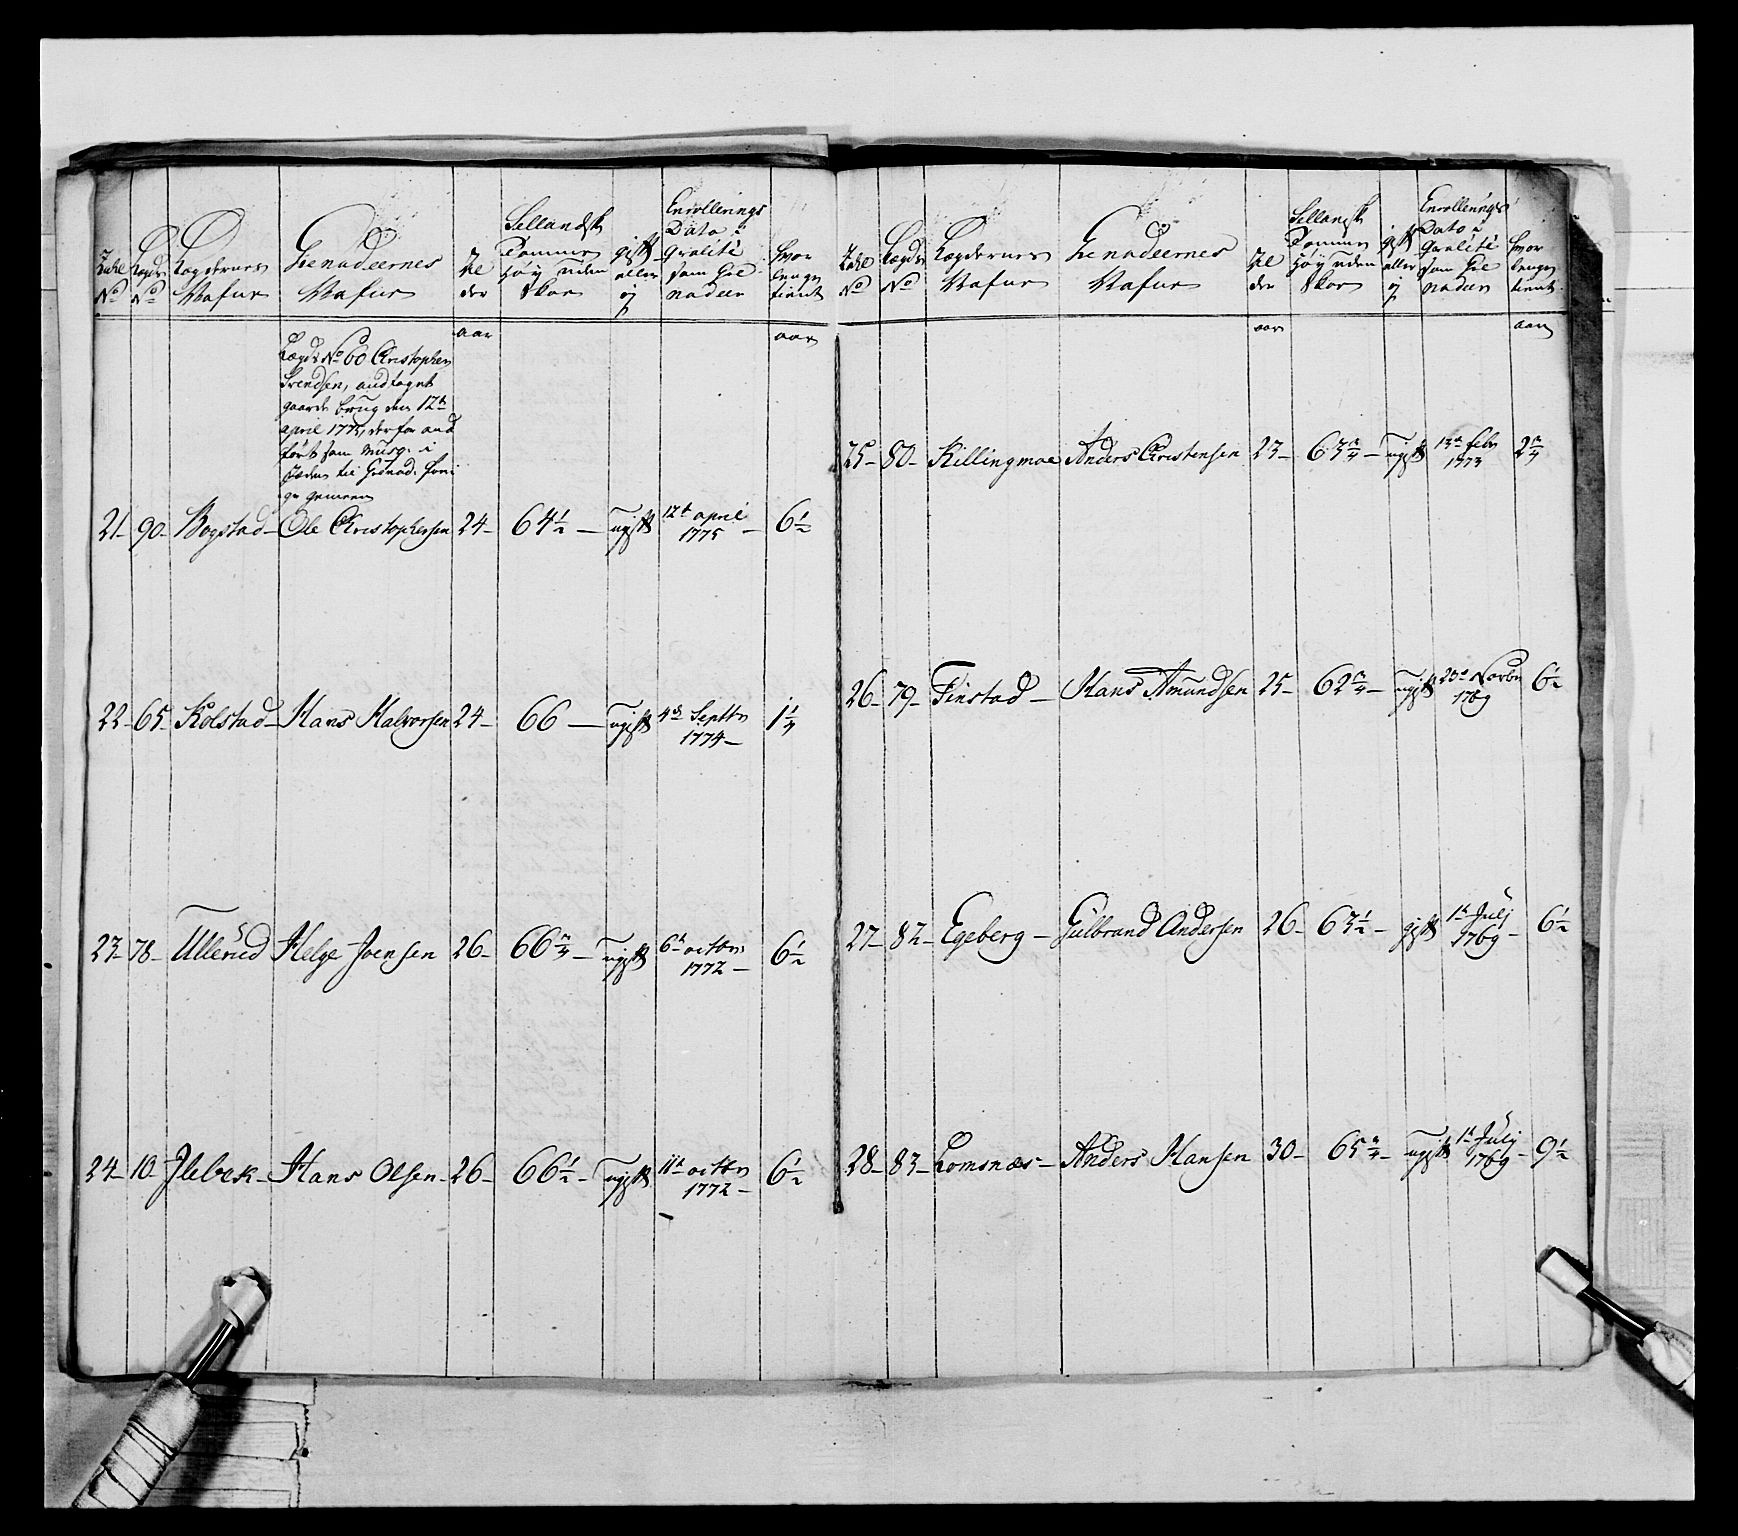 Lægdernes Nafne
Grenadeernes Nafne
Sellandsk Tommer høy uden Skoe
gift eller ej
Enrollerings Dato i Qvalité som Grenadeer
hvor lenge tient
aar
aar
Lægds No 60 Christopher
Svendsen, andtaget
gaards brug den 12te
april 1775, derfor and
ført som Musq. i
stæden til Grenad.
gemeen
21 - 90 - Bogstad - Ole Christophersen 24 - 64 1/2 - ugift 12te april 1775 - 6 1/2
22 - 65 - Kolstad - Hans Halvorsen 24 - 66 - ugift 4de Septbr 1774 - 1 1/4
23 - 78 - Ullerud Helge Joensen 26 - 66 3/4 - ugift 6te octbr 1772 - 6 1/2
24 - 10 - Ilebek - Hans Olsen - 26 - 66 1/2 - ugift 11te octbr 1772 - 6 1/2
Lægdernes Nafne
Grenadeernes Nafne
Sellandsk Tommer høy uden Skoe
gift eller ej
Enrollerings Dato i Qvalité som Grenadeer
hvor lenge tient
aar
aar
25 - 80 - Killingmoe Anders Christensen 23 - 63 3/4 - ugift 13de febr 1773 2 3/4
26 - 79 - Finstad - Hans Amundsen 25 - 62 3/4 - ugift 23de Novbr 1769 6 1/2
27 - 82 - Egeberg - Gulbrand Andersen 26 - 63 1/2 - gift 1te Julj 1769 - 6 1/2
28 - 83 - Lomsnæs - Anders Hansen 30 - 65 3/4 - ugift 1te Julj 1769 - 9 1/2